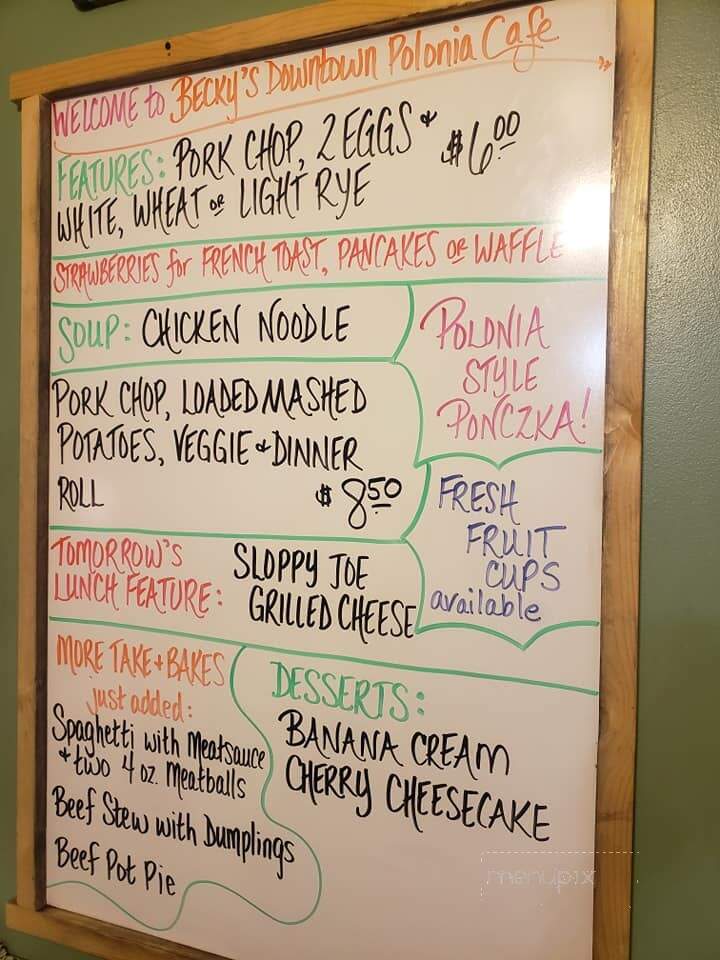 WELCOME to BECKY'S DOWNTOWN POLONIA CAFE
FEATURES: PORK CHOP, 2 EGGS & $6.00
WHITE, WHEAT or LIGHT RYE
STRAWBERRIES for FRENCH TOAST, PANCAKES or WAFFLE
SOUP: CHICKEN NOODLE
POLONIA
STYLE
PONCZKA!
PORK CHOP, LOADED MASHED
POTATOES, VEGGIE & DINNER
ROLL $8.50
FRESH
FRUIT
CUPS
available
TOMORROW'S
LUNCH FEATURE:
SLOPPY JOE
GRILLED CHEESE
MORE TAKE + BAKES
just added:
Spaghetti with Meatsauce
+ two 4 oz. Meatballs
Beef Stew with Dumplings
Beef Pot Pie
DESSERTS:
BANANA CREAM
CHERRY CHEESECAKE
menupix